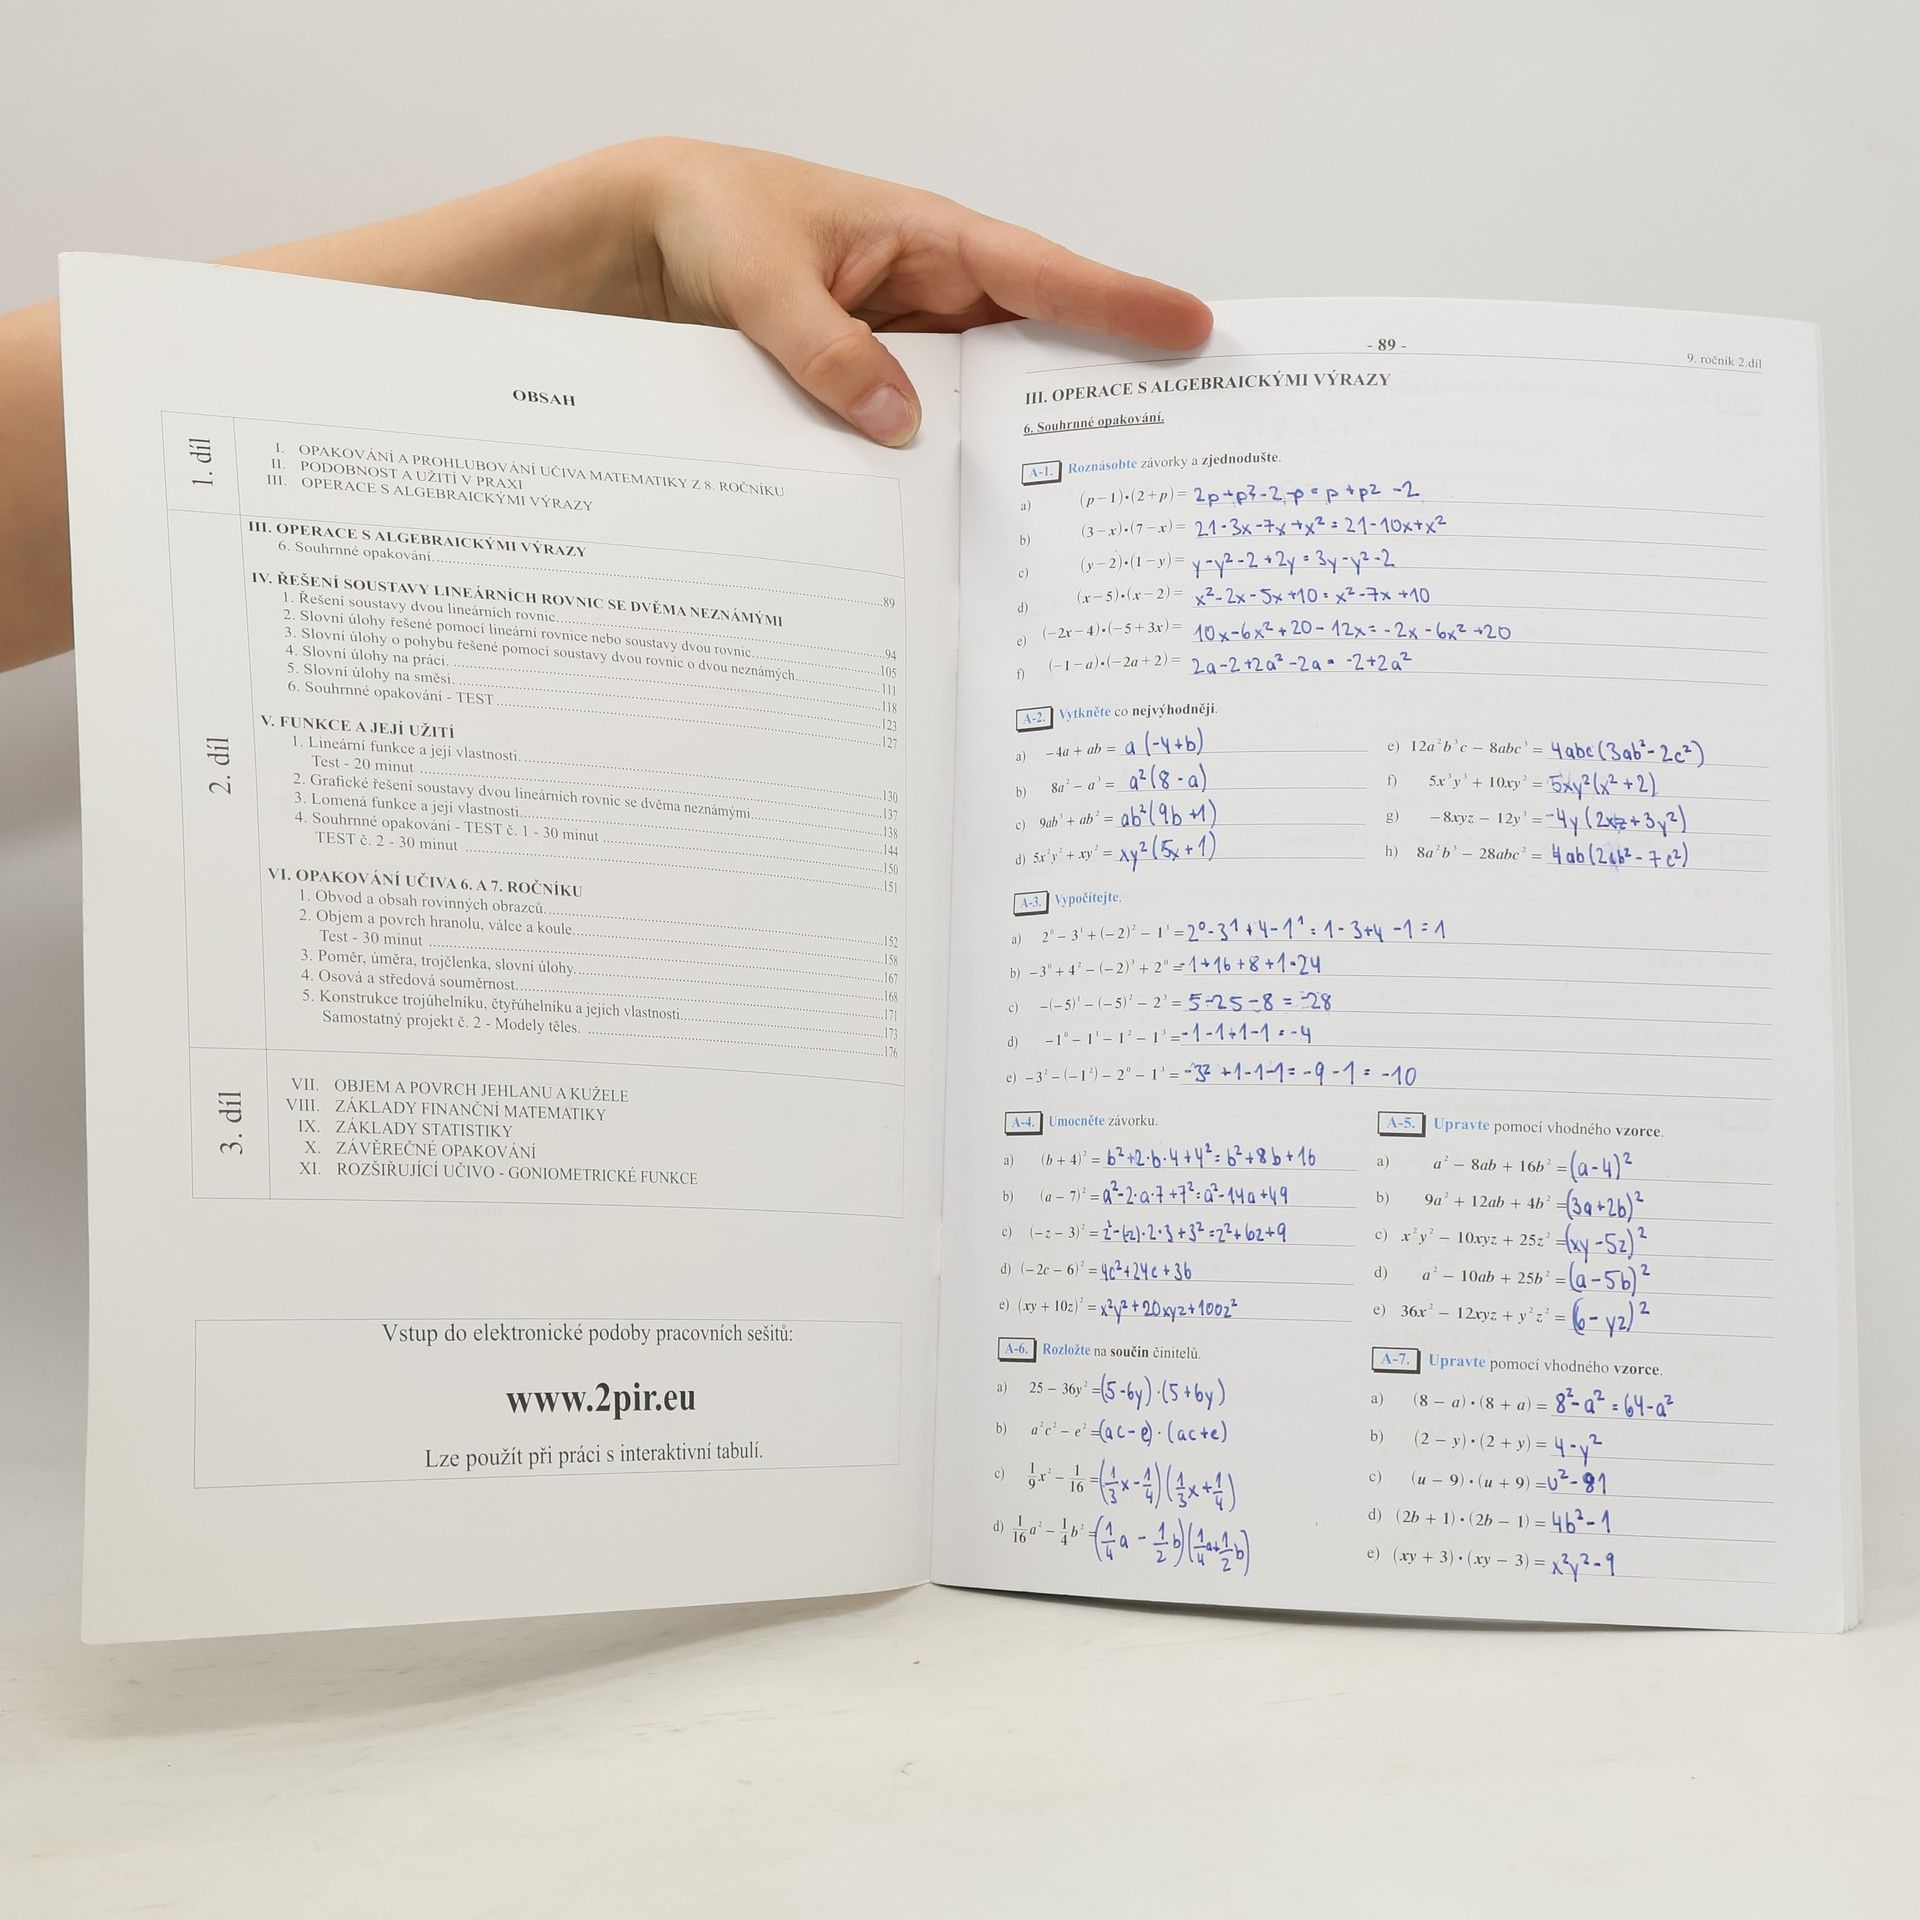 OBSAH
1. díl
I. OPAKOVÁNÍ A PROHLUBOVÁNÍ UČIVA MATEMATIKY Z 8. ROČNÍKU
II. PODOBNOST A UŽITÍ V PRAXI
III. OPERACE S ALGEBRAICKÝMI VÝRAZY
2. díl
III. OPERACE S ALGEBRAICKÝMI VÝRAZY
6. Souhrnné opakování. 89
IV. ŘEŠENÍ SOUSTAVY LINEÁRNÍCH ROVNIC SE DVĚMA NEZNÁMÝMI
1. Řešení soustavy dvou lineárních rovnic. 94
2. Slovní úlohy řešené pomocí lineární rovnice nebo soustavy dvou rovnic. 105
3. Slovní úlohy o pohybu řešené pomocí soustavy dvou rovnic o dvou neznámých. 111
4. Slovní úlohy na práci. 118
5. Slovní úlohy na směsi. 123
6. Souhrnné opakování - TEST 127
V. FUNKCE A JEJÍ UŽITÍ
1. Lineární funkce a její vlastnosti.
Test - 20 minut 130
2. Grafické řešení soustavy dvou lineárních rovnic se dvěma neznámými. 137
3. Lomená funkce a její vlastnosti. 138
4. Souhrnné opakování - TEST č. 1 - 30 minut 144
TEST č. 2 - 30 minut 150
151
VI. OPAKOVÁNÍ UČIVA 6. A 7. ROČNÍKU
1. Obvod a obsah rovinných obrazců. 152
2. Objem a povrch hranolu, válce a koule. 158
Test - 30 minut 167
3. Poměr, úměra, trojčlenka, slovní úlohy. 168
4. Osová a středová souměrnost. 171
5. Konstrukce trojúhelníku, čtyřúhelníku a jejich vlastnosti. 173
Samostatný projekt č. 2 - Modely těles. 176
3. díl
VII. OBJEM A POVRCH JEHLANU A KUŽELE
VIII. ZÁKLADY FINANČNÍ MATEMATIKY
IX. ZÁKLADY STATISTIKY
X. ZÁVĚREČNÉ OPAKOVÁNÍ
XI. ROZŠIŘUJÍCÍ UČIVO - GONIOMETRICKÉ FUNKCE
Vstup do elektronické podoby pracovních sešitů:
www.2pir.eu
Lze použít při práci s interaktivní tabulí.
- 89 -
9. ročník 2.díl
III. OPERACE S ALGEBRAICKÝMI VÝRAZY
6. Souhrnné opakování.
A-1. Roznásobte závorky a zjednodušte.
a) (p − 1)•(2 + p) = 2p + p² - 2 - p = p + p² - 2
b) (3 − x)•(7 − x) = 21 - 3x - 7x + x² = 21 - 10x + x²
c) (y − 2)•(1 − y) = y - y² - 2 + 2y = 3y - y² - 2
d) (x − 5)•(x − 2) = x² - 2x - 5x + 10 = x² - 7x + 10
e) (−2x − 4)•(−5 + 3x) = 10x - 6x² + 20 - 12x = -2x - 6x² + 20
f) (−1 − a)•(−2a + 2) = 2a - 2 + 2a² - 2a = -2 + 2a²
A-2. Vytkněte co nejvýhodněji.
a) −4a + ab = a(-4 + b)
b) 8a² − a³ = a²(8 - a)
c) 9ab³ + ab² = ab²(9b + 1)
d) 5x²y² + xy² = xy²(5x + 1)
e) 12a²b³c − 8abc³ = 4abc(3ab² - 2c²)
f) 5x³y³ + 10xy² = 5xy²(x² + 2)
g) −8xyz − 12y³ = -4y(2xz + 3y²)
h) 8a²b³ − 28abc² = 4ab(2ab² - 7c²)
A-3. Vypočítejte.
a) 2⁰ − 3¹ + (−2)² − 1¹ = 2⁰ - 3¹ + 4 - 1¹ = 1 - 3 + 4 - 1 = 1
b) −3⁰ + 4² − (−2)³ + 2⁰ = -1 + 16 + 8 + 1 = 24
c) −(−5)¹ − (−5)² − 2³ = 5 - 25 - 8 = -28
d) −1⁰ − 1¹ − 1² − 1³ = -1 - 1 + 1 - 1 = -4
e) −3² − (−1²) − 2⁰ − 1³ = -3² + 1 - 1 - 1 = -9 - 1 = -10
A-4. Umocněte závorku.
a) (b + 4)² = b² + 2·b·4 + 4² = b² + 8b + 16
b) (a − 7)² = a² - 2·a·7 + 7² = a² - 14a + 49
c) (−z − 3)² = z² - (-z)·2·3 + 3² = z² + 6z + 9
d) (−2c − 6)² = 4c² + 24c + 36
e) (xy + 10z)² = x²y² + 20xyz + 100z²
A-5. Upravte pomocí vhodného vzorce.
a) a² − 8ab + 16b² = (a - 4)²
b) 9a² + 12ab + 4b² = (3a + 2b)²
c) x²y² − 10xyz + 25z² = (xy - 5z)²
d) a² − 10ab + 25b² = (a - 5b)²
e) 36x² − 12xyz + y²z² = (6 - yz)²
A-6. Rozložte na součin činitelů.
a) 25 − 36y² = (5 - 6y)·(5 + 6y)
b) a²c² − e² = (ac - e)·(ac + e)
c) 1/9 x² − 1/16 = (1/3 x - 1/4)(1/3 x + 1/4)
d) 1/16 a² − 1/4 b² = (1/4 a - 1/2 b)(1/4 a + 1/2 b)
A-7. Upravte pomocí vhodného vzorce.
a) (8 − a)•(8 + a) = 8² - a² = 64 - a²
b) (2 − y)•(2 + y) = 4 - y²
c) (u − 9)•(u + 9) = u² - 81
d) (2b + 1)•(2b − 1) = 4b² - 1
e) (xy + 3)•(xy − 3) = x²y² - 9